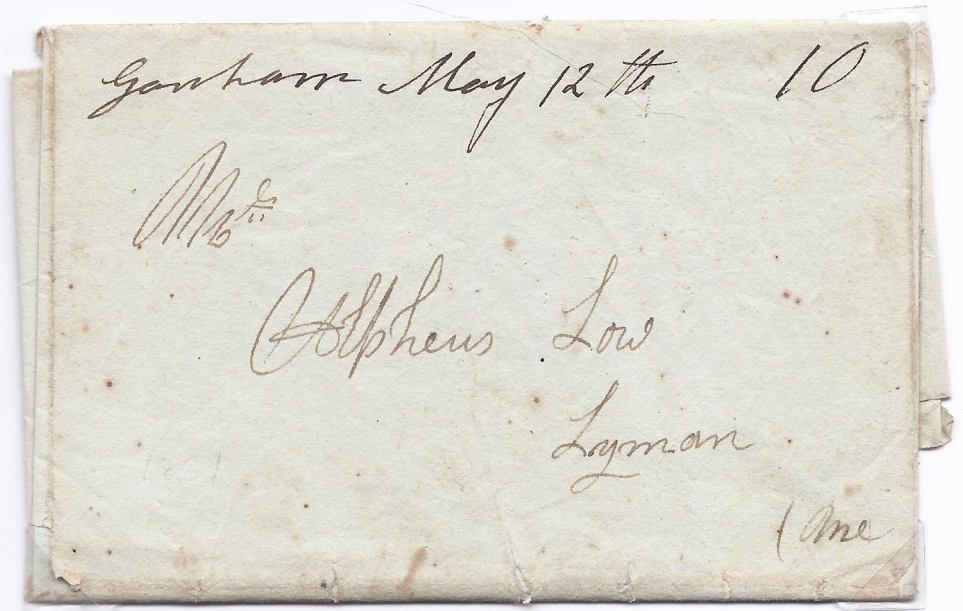 Gorham May 12th 10
Mrs
Alpheus Low
Lyman
Me